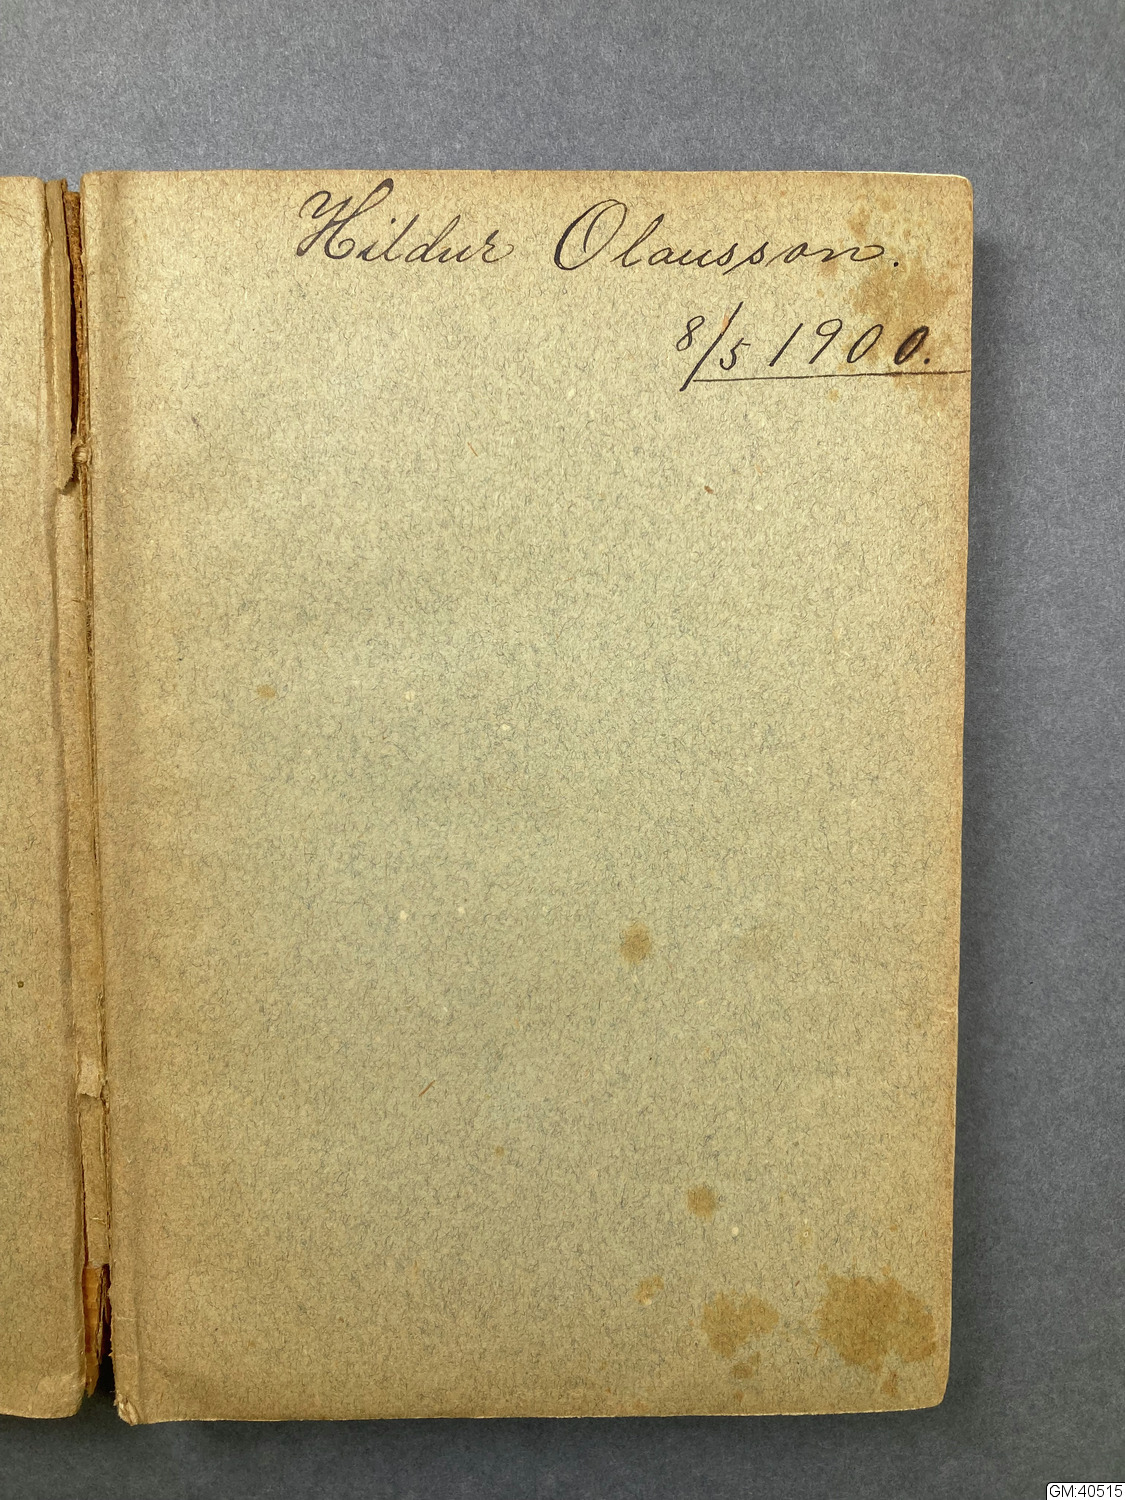 Hildur Olausson.
8/5 1900.
GM:40515